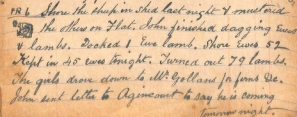 FR 6 Shore the sheep in Shed last night & mustered
the others on Flat. John finished dagging Ewes
& lambs. Docked 1 Ewe lamb. Shore Ewes 52
Kept in 45 ewes tonight. Turned out 79 lambs.
The girls drove down to Mr Gollans for ferns &c.
John sent letter to Agincourt to say he is coming
tomorrow night.